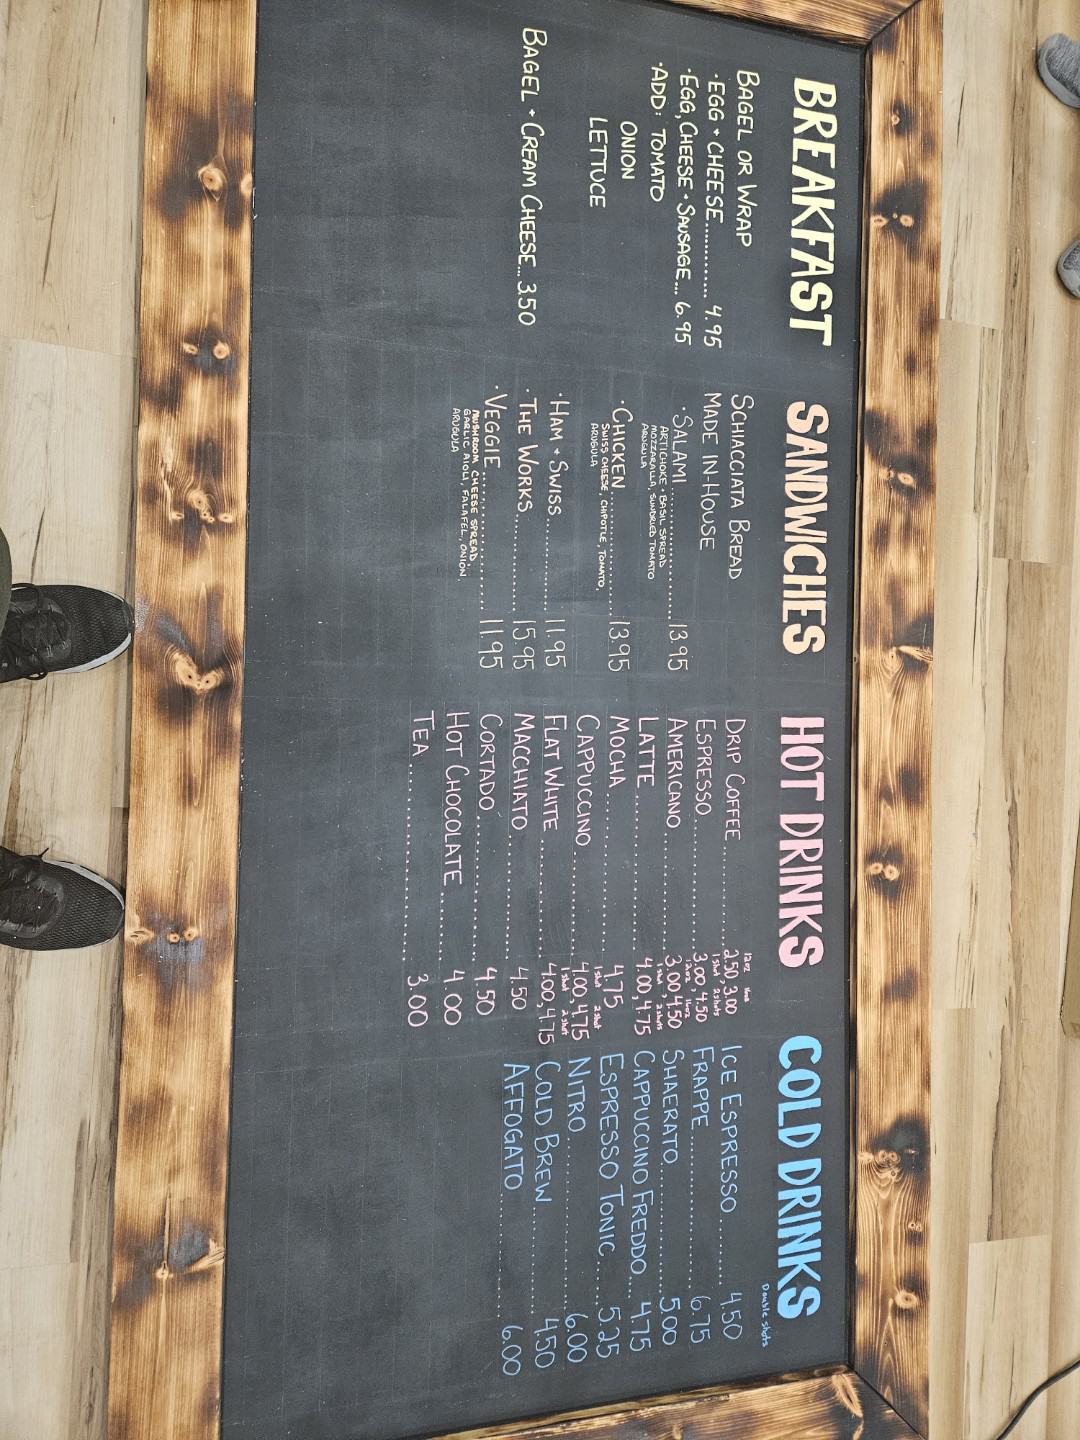 BREAKFAST
BAGEL OR WRAP
· EGG + CHEESE............ 4.95
· EGG, CHEESE + SAUSAGE... 6.95
· ADD: TOMATO
ONION
LETTUCE
BAGEL + CREAM CHEESE... 3.50
SANDWICHES
SCHIACCIATA BREAD
MADE IN-HOUSE
· SALAMI .................... 13.95
ARTICHOKE + BASIL SPREAD
MOZZARALLA, SUNDRIED TOMATO
ARUGULA
· CHICKEN.................... 13.95
SWISS CHEESE, CHIPOTLE, TOMATO,
ARUGULA
· HAM + SWISS............... 11.95
· THE WORKS............... 15.95
· VEGGIE .................... 11.95
MUSHROOM, CHEESE SPREAD,
GARLIC AIOLI, FALAFEL, ONION,
ARUGULA
HOT DRINKS
12oz 16oz
DRIP COFFEE ............... 2.50, 3.00
1 shot, 2 shots
ESPRESSO.................... 3.00, 4.50
12oz 16oz
AMERICANO................. 3.00, 4.50
1 shot, 2 shots
LATTE....................... 4.00, 4.75
MOCHA ...................... 4.75
1 shot 2 shot
CAPPUCCINO ............... 4.00, 4.75
1 shot 2 shot
FLAT WHITE ............... 4.00, 4.75
MACCHIATO ................ 4.50
CORTADO.................... 4.50
HOT CHOCOLATE .......... 4.00
TEA.......................... 3.00
COLD DRINKS
Double shots
ICE ESPRESSO ......... 4.50
FRAPPE.................... 6.75
SHAERATO............... 5.00
CAPPUCCINO FREDDO.... 4.75
ESPRESSO TONIC ...... 5.25
NITRO..................... 6.00
COLD BREW............. 4.50
AFFOGATO.............. 6.00